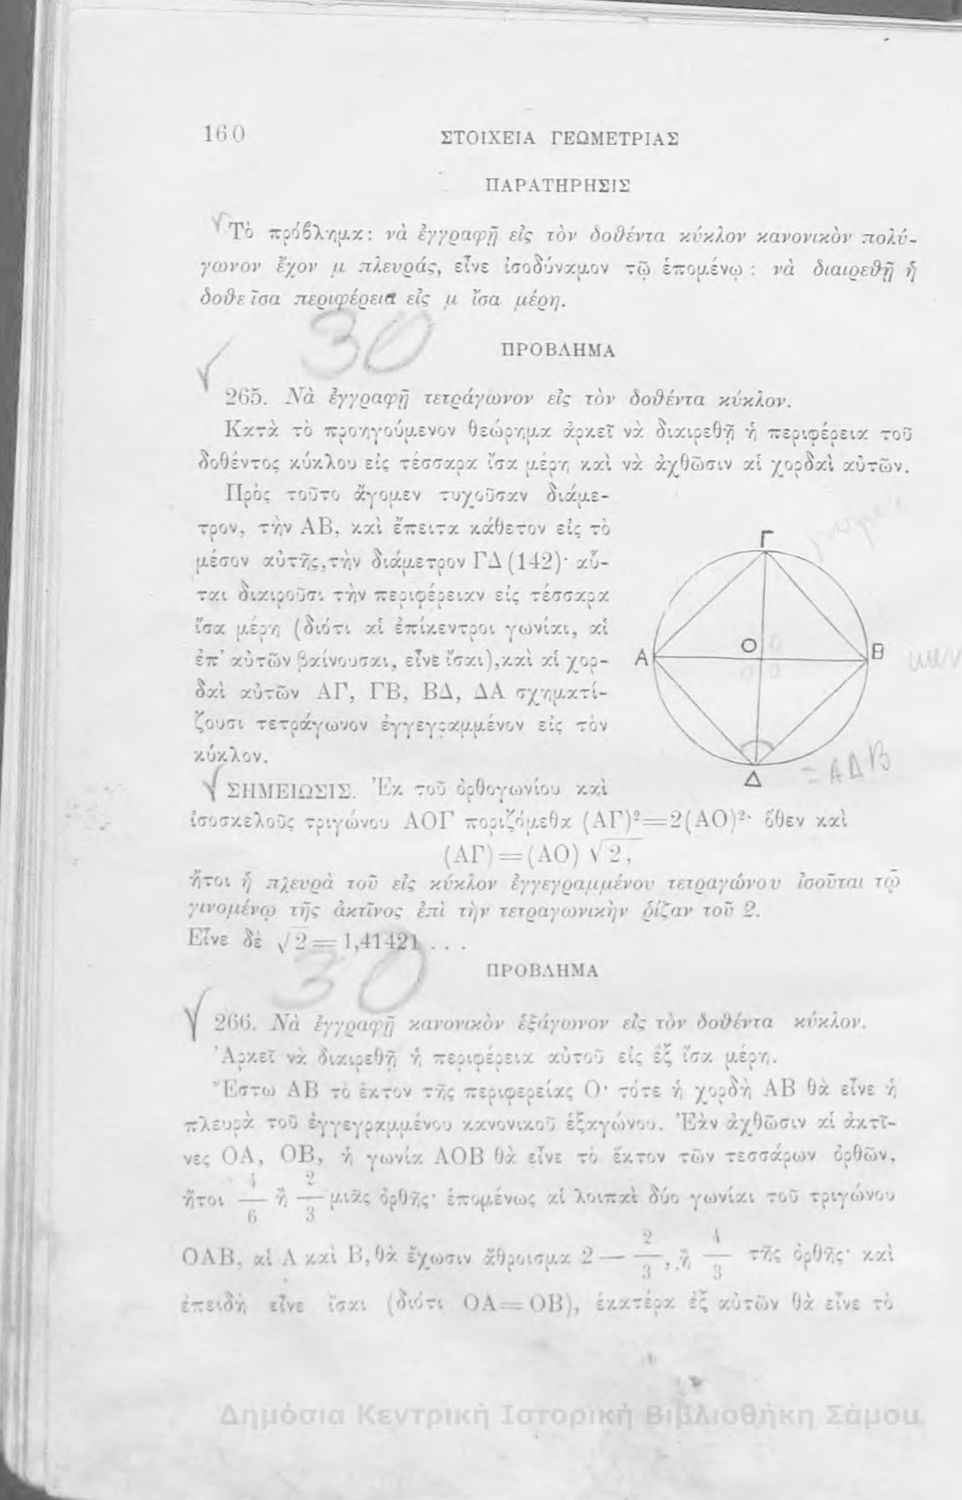 160
ΣΤΟΙΧΕΙΑ ΓΕΩΜΕΤΡΙΑΣ
ΠΑΡΑΤΗΡΗΣΙΣ
Τὸ πρόβλημα: νὰ ἐγγραφῇ εἰς τὸν δοθέντα κύκλον κανονικὸν πολύ-
γωνον ἔχον μ πλευράς, εἶνε ἰσοδύναμον τῷ ἑπομένῳ : νὰ διαιρεθῇ ἡ
δοθεῖσα περιφέρεια εἰς μ ἴσα μέρη.
30
ΠΡΟΒΛΗΜΑ
265. Νὰ ἐγγραφῇ τετράγωνον εἰς τὸν δοθέντα κύκλον.
Κατὰ τὸ προηγούμενον θεώρημα ἀρκεῖ νὰ διαιρεθῇ ἡ περιφέρεια τοῦ
δοθέντος κύκλου εἰς τέσσαρα ἴσα μέρη καὶ νὰ ἀχθῶσιν αἱ χορδαὶ αὐτῶν.
Πρὸς τοῦτο ἄγομεν τυχοῦσαν διάμε-
τρον, τὴν ΑΒ, καὶ ἔπειτα κάθετον εἰς τὸ
μέσον αὐτῆς, τὴν διάμετρον ΓΔ (142)· αὗ-
ται διαιροῦσι τὴν περιφέρειαν εἰς τέσσαρα
ἴσα μέρη (διότι αἱ ἐπίκεντροι γωνίαι, αἱ
ἐπ' αὐτῶν βαίνουσαι, εἶνε ἴσαι), καὶ αἱ χορ-
δαὶ αὐτῶν ΑΓ, ΓΒ, ΒΔ, ΔΑ σχηματί-
ζουσι τετράγωνον ἐγγεγραμμένον εἰς τὸν
κύκλον.
Γ
Α
Ο
Β
Δ
= ΑΔΒ
ΣΗΜΕΙΩΣΙΣ. Ἐκ τοῦ ὀρθογωνίου καὶ
ἰσοσκελοῦς τριγώνου ΑΟΓ ποριζόμεθα (ΑΓ)²=2(ΑΟ)²· ὅθεν καὶ
(ΑΓ)=(ΑΟ) √2,
ἤτοι ἡ πλευρὰ τοῦ εἰς κύκλον ἐγγεγραμμένου τετραγώνου ἰσοῦται τῷ
γινομένῳ τῆς ἀκτῖνος ἐπὶ τὴν τετραγωνικὴν ῥίζαν τοῦ 2.
Εἶνε δὲ √2 = 1,41421 . . .
30
ΠΡΟΒΛΗΜΑ
266. Νὰ ἐγγραφῇ κανονικὸν ἑξάγωνον εἰς τὸν δοθέντα κύκλον.
Ἀρκεῖ νὰ διαιρεθῇ ἡ περιφέρεια αὐτοῦ εἰς ἓξ ἴσα μέρη.
Ἔστω ΑΒ τὸ ἕκτον τῆς περιφερείας Ο· τότε ἡ χορδὴ ΑΒ θὰ εἶνε ἡ
πλευρὰ τοῦ ἐγγεγραμμένου κανονικοῦ ἑξαγώνου. Ἐὰν ἀχθῶσιν αἱ ἀκτῖ-
νες ΟΑ, ΟΒ, ἡ γωνία ΑΟΒ θὰ εἶνε τὸ ἕκτον τῶν τεσσάρων ὀρθῶν,
ἤτοι 4/6 ἢ 2/3 μιᾶς ὀρθῆς· ἑπομένως αἱ λοιπαὶ δύο γωνίαι τοῦ τριγώνου
ΟΑΒ, αἱ Α καὶ Β, θὰ ἔχωσιν ἄθροισμα 2 — 2/3, ἢ 4/3 τῆς ὀρθῆς· καὶ
ἐπειδὴ εἶνε ἴσαι (διότι ΟΑ=ΟΒ), ἑκατέρα ἐξ αὐτῶν θὰ εἶνε τὸ
Δημόσια Κεντρική Ιστορική Βιβλιοθήκη Σάμου